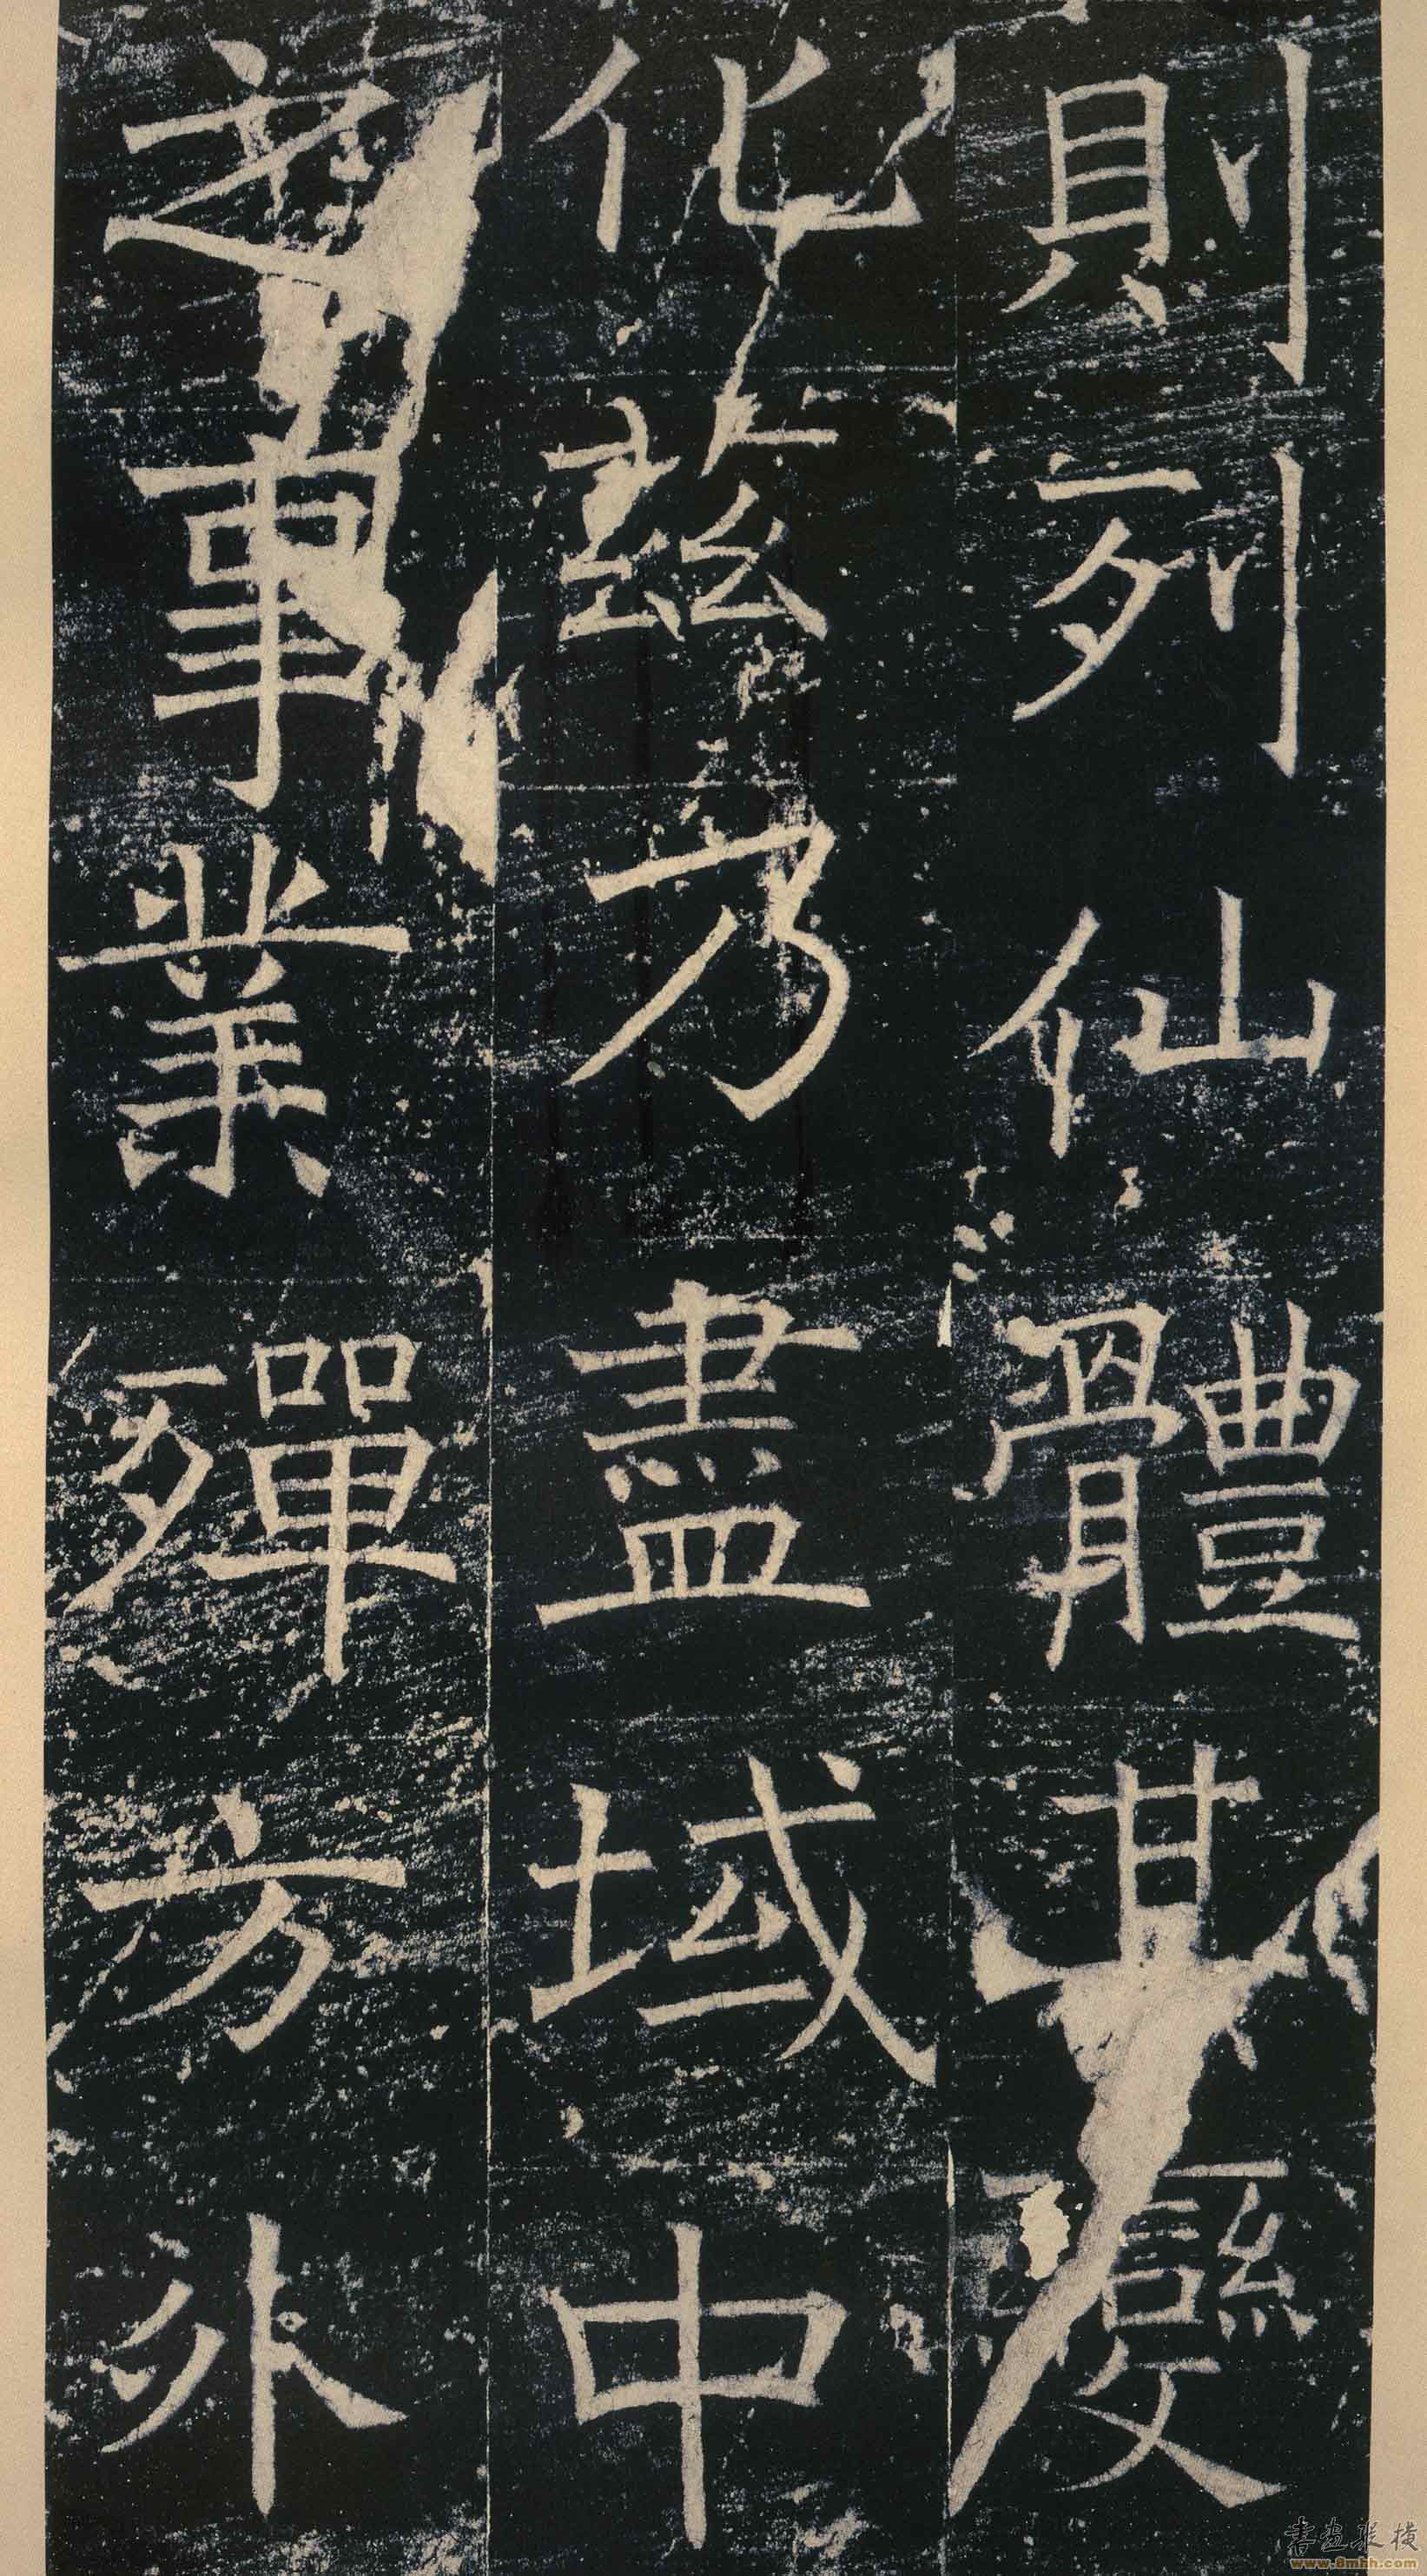 則列仙體其變
化茲乃盡域中
之事業殫方外
書畫縱橫
www.8mhh.com